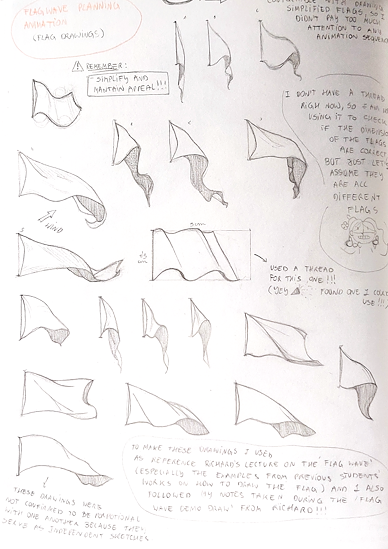 FLAGWAVE PLANNING
ANIMATION
(FLAG DRAWINGS)
SIMPLIFIED FLAGS, SO I
DIDN'T PAY TOO MUCH
ATTENTION TO ANY
ANIMATION SEQUENCE
REMEMBER:
"SIMPLIFY AND
MANTAIN APPEAL!!!
I DON'T HAVE A THREAD
RIGHT NOW, SO I AM NOT
USING IT TO CHECK
IF THE DIMENSIONS
OF THE FLAGS
ARE CORRECT
BUT JUST LET'S
ASSUME THEY
ARE ALL
DIFFERENT
FLAGS
WIND
USED A THREAD
FOR THIS ONE!!!
(YEY FOUND ONE I COULD
USE!!!)
TO MAKE THESE DRAWINGS I USED
AS REFERENCE RICHARD'S LECTURE ON THE "FLAG WAVE"
(ESPECIALLY THE EXAMPLES FROM PREVIOUS STUDENTS'
WORKS ON HOW TO DRAW THE FLAG) AND I ALSO
FOLLOWED MY NOTES TAKEN DURING THE "FLAG
WAVE DEMO DRAW" FROM RICHARD!!!
THESE DRAWINGS WERE
NOT CONFIGURED TO BE
WITH ONE ANOTHER BECAUSE THEY
SERVE AS INDEPENDENT SKETCHES